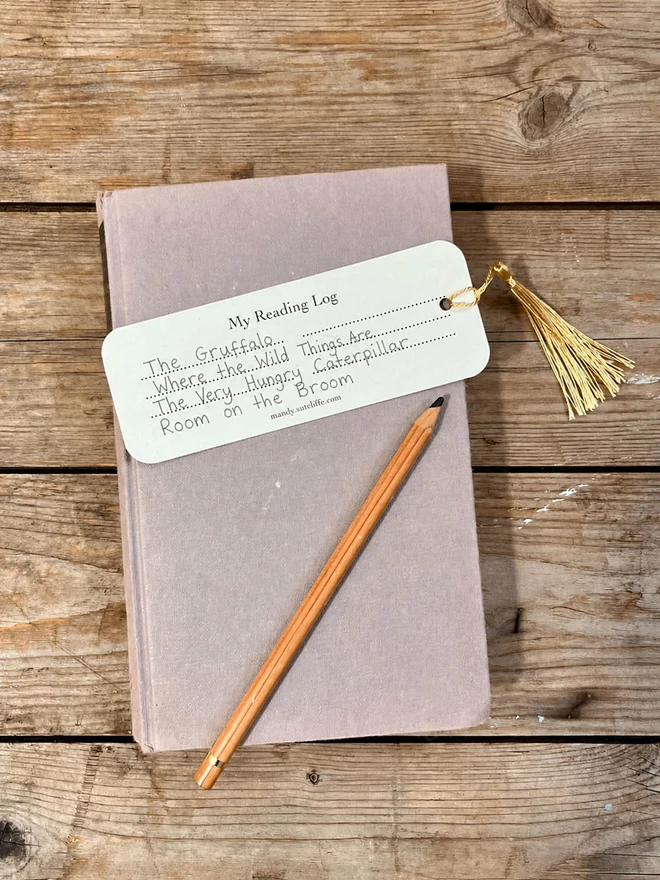 My Reading Log
The Gruffalo
Where the Wild Things Are
The Very Hungry Caterpillar
Room on the Broom
mandy.sutcliffe.com